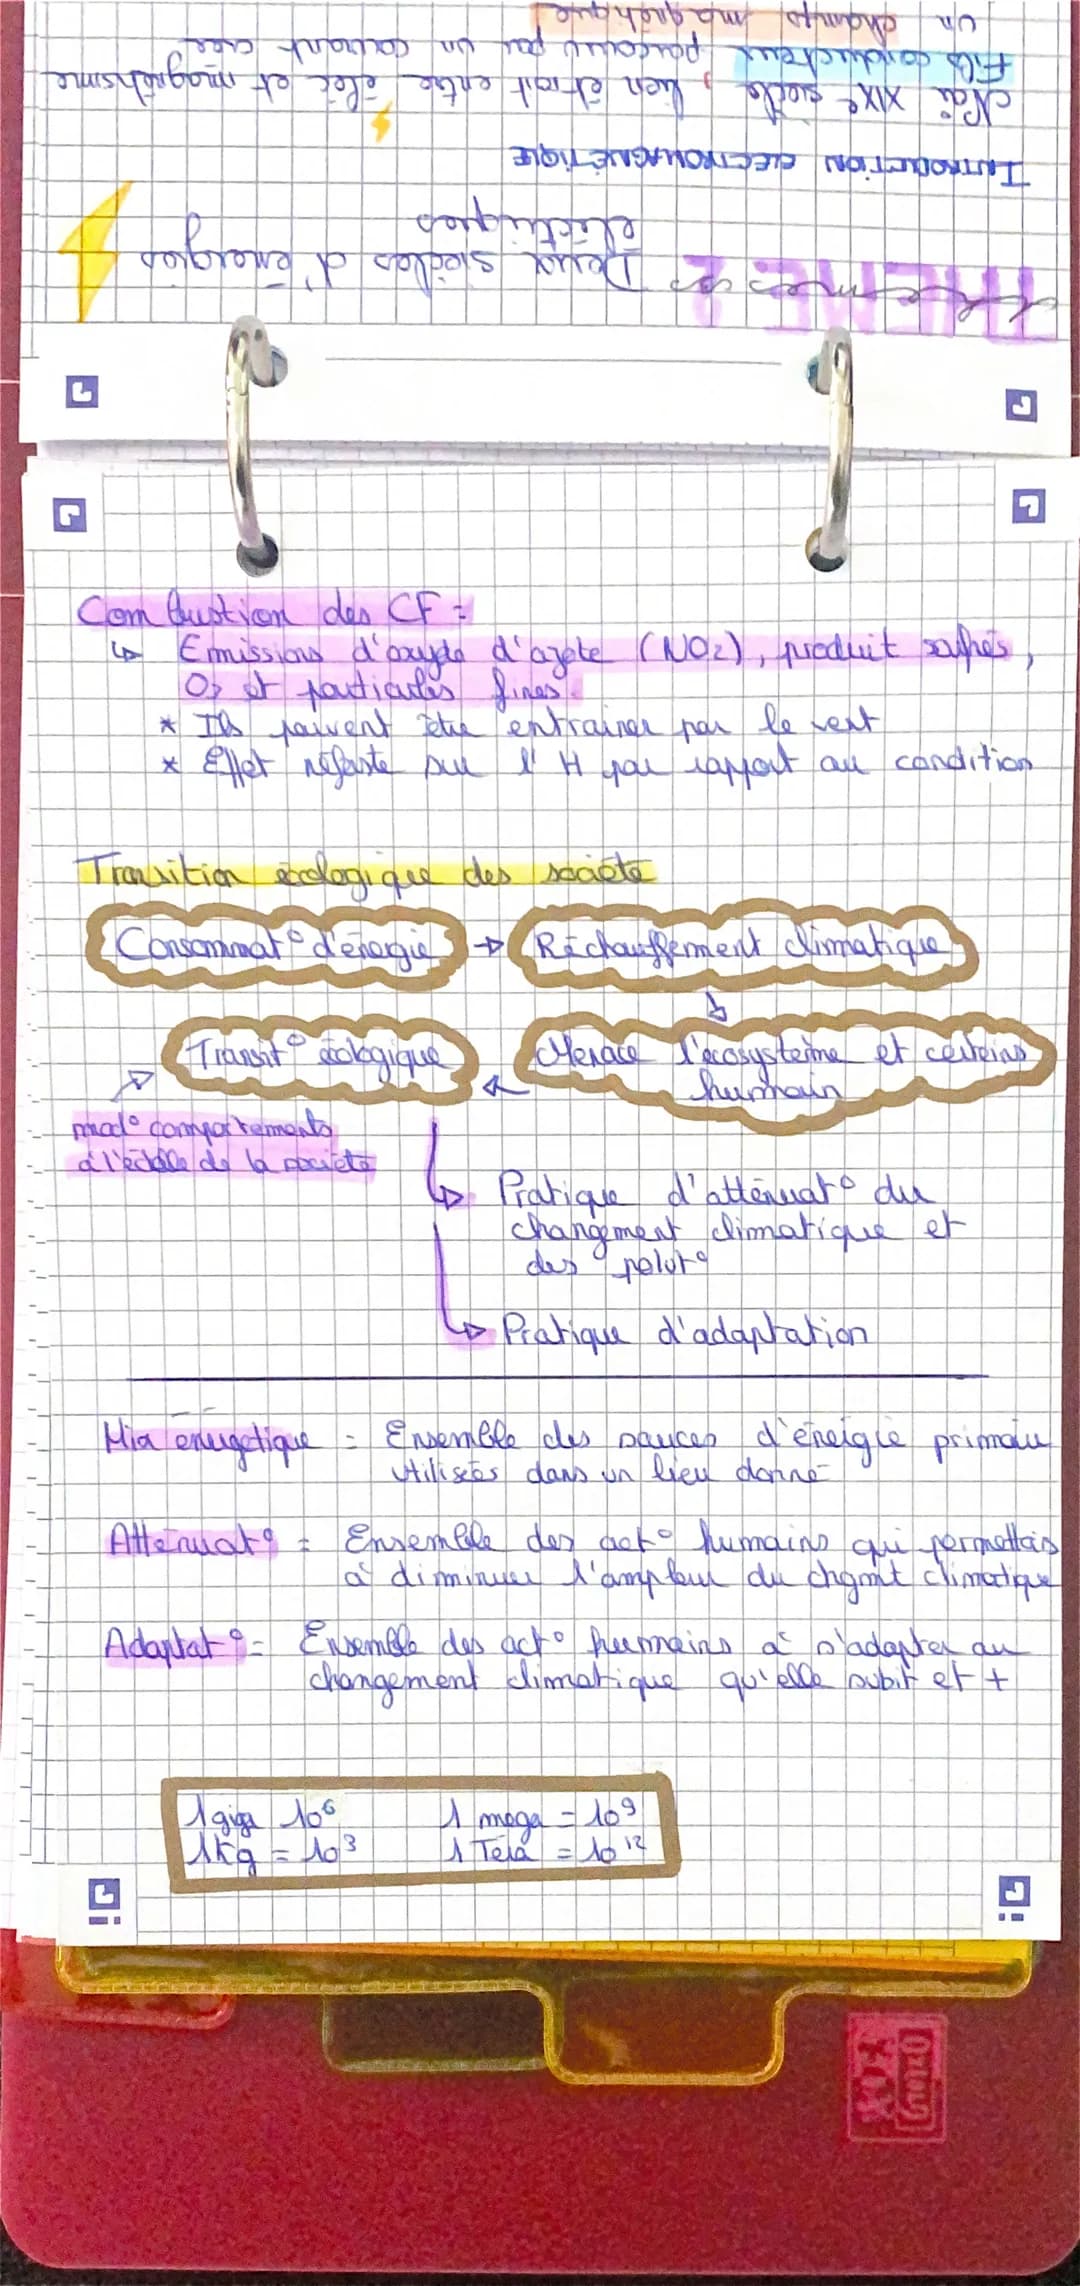 THEME 2
Thème 2 Deux siècles d'énergies
électriques
INTRODUCTION ELECTROMAGNÉTIQUE
XIXe siècle, lien étroit entre élec et magnétisme
Fils conducteur parcouru par un courant crée
un champs magnétique
Combustion des CF =
↳ Emissions d'oxyde d'azote (NO2), produit soufrés,
O3 et particules fines.
* Ils peuvent être entrainer par le vent
* Effet néfaste sur l'H par rapport au condition
Transition écologique des société
Consommat° d'énergie → Réchauffement climatique
Transit° écologique ← Menace l'écosystème et certains
humain
mod° comportements
à l'échelle de la société
↳ Pratique d'atténuat° du
changement climatique et
des polut°
↳ Pratique d'adaptation
Mix énergetique = Ensemble des sources d'énergie primaire
utilisés dans un lieu donné
Attenuat° = Ensemble des act° humains qui permettais
à diminuer l'ampleur du chgmt climatique
Adaptat° = Ensemble des act° humains à s'adapter au
changement climatique qu'elle subit et +
1 giga 10⁶ 1 mega = 10⁹
1 Kg = 10³ 1 Tera = 10¹²